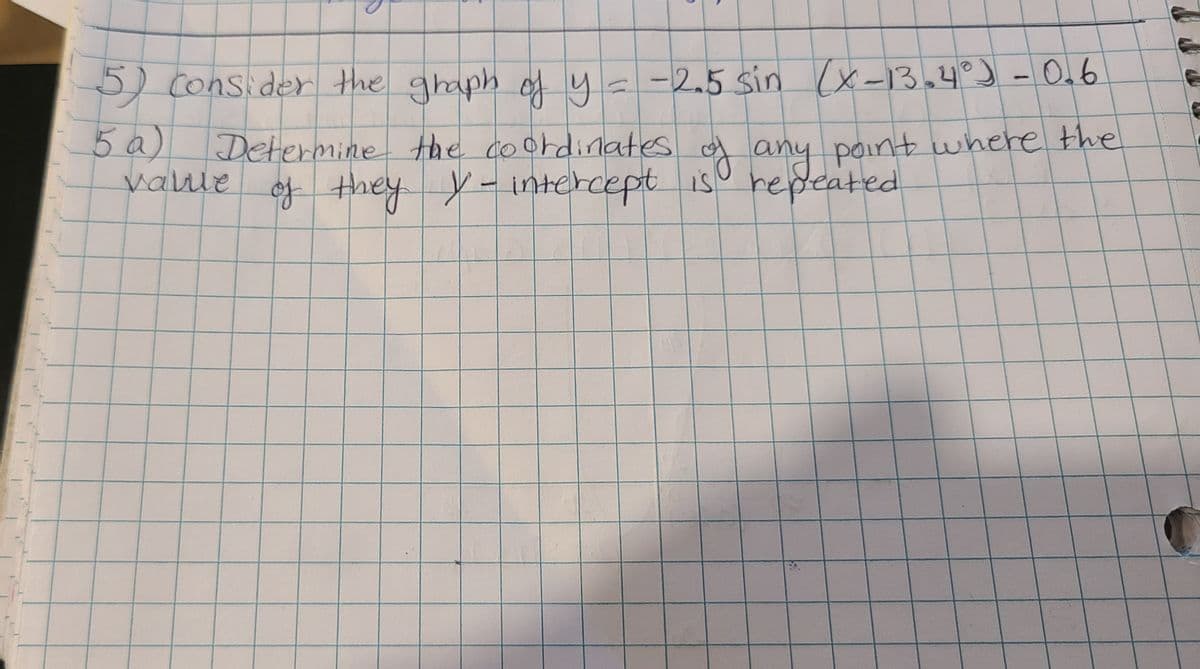 5) Consider the graph of y = -2.5 sin (x-13.4°) - 0.6
5a) Determine the coordinates of any point where the
value of they y-intercept is repeated